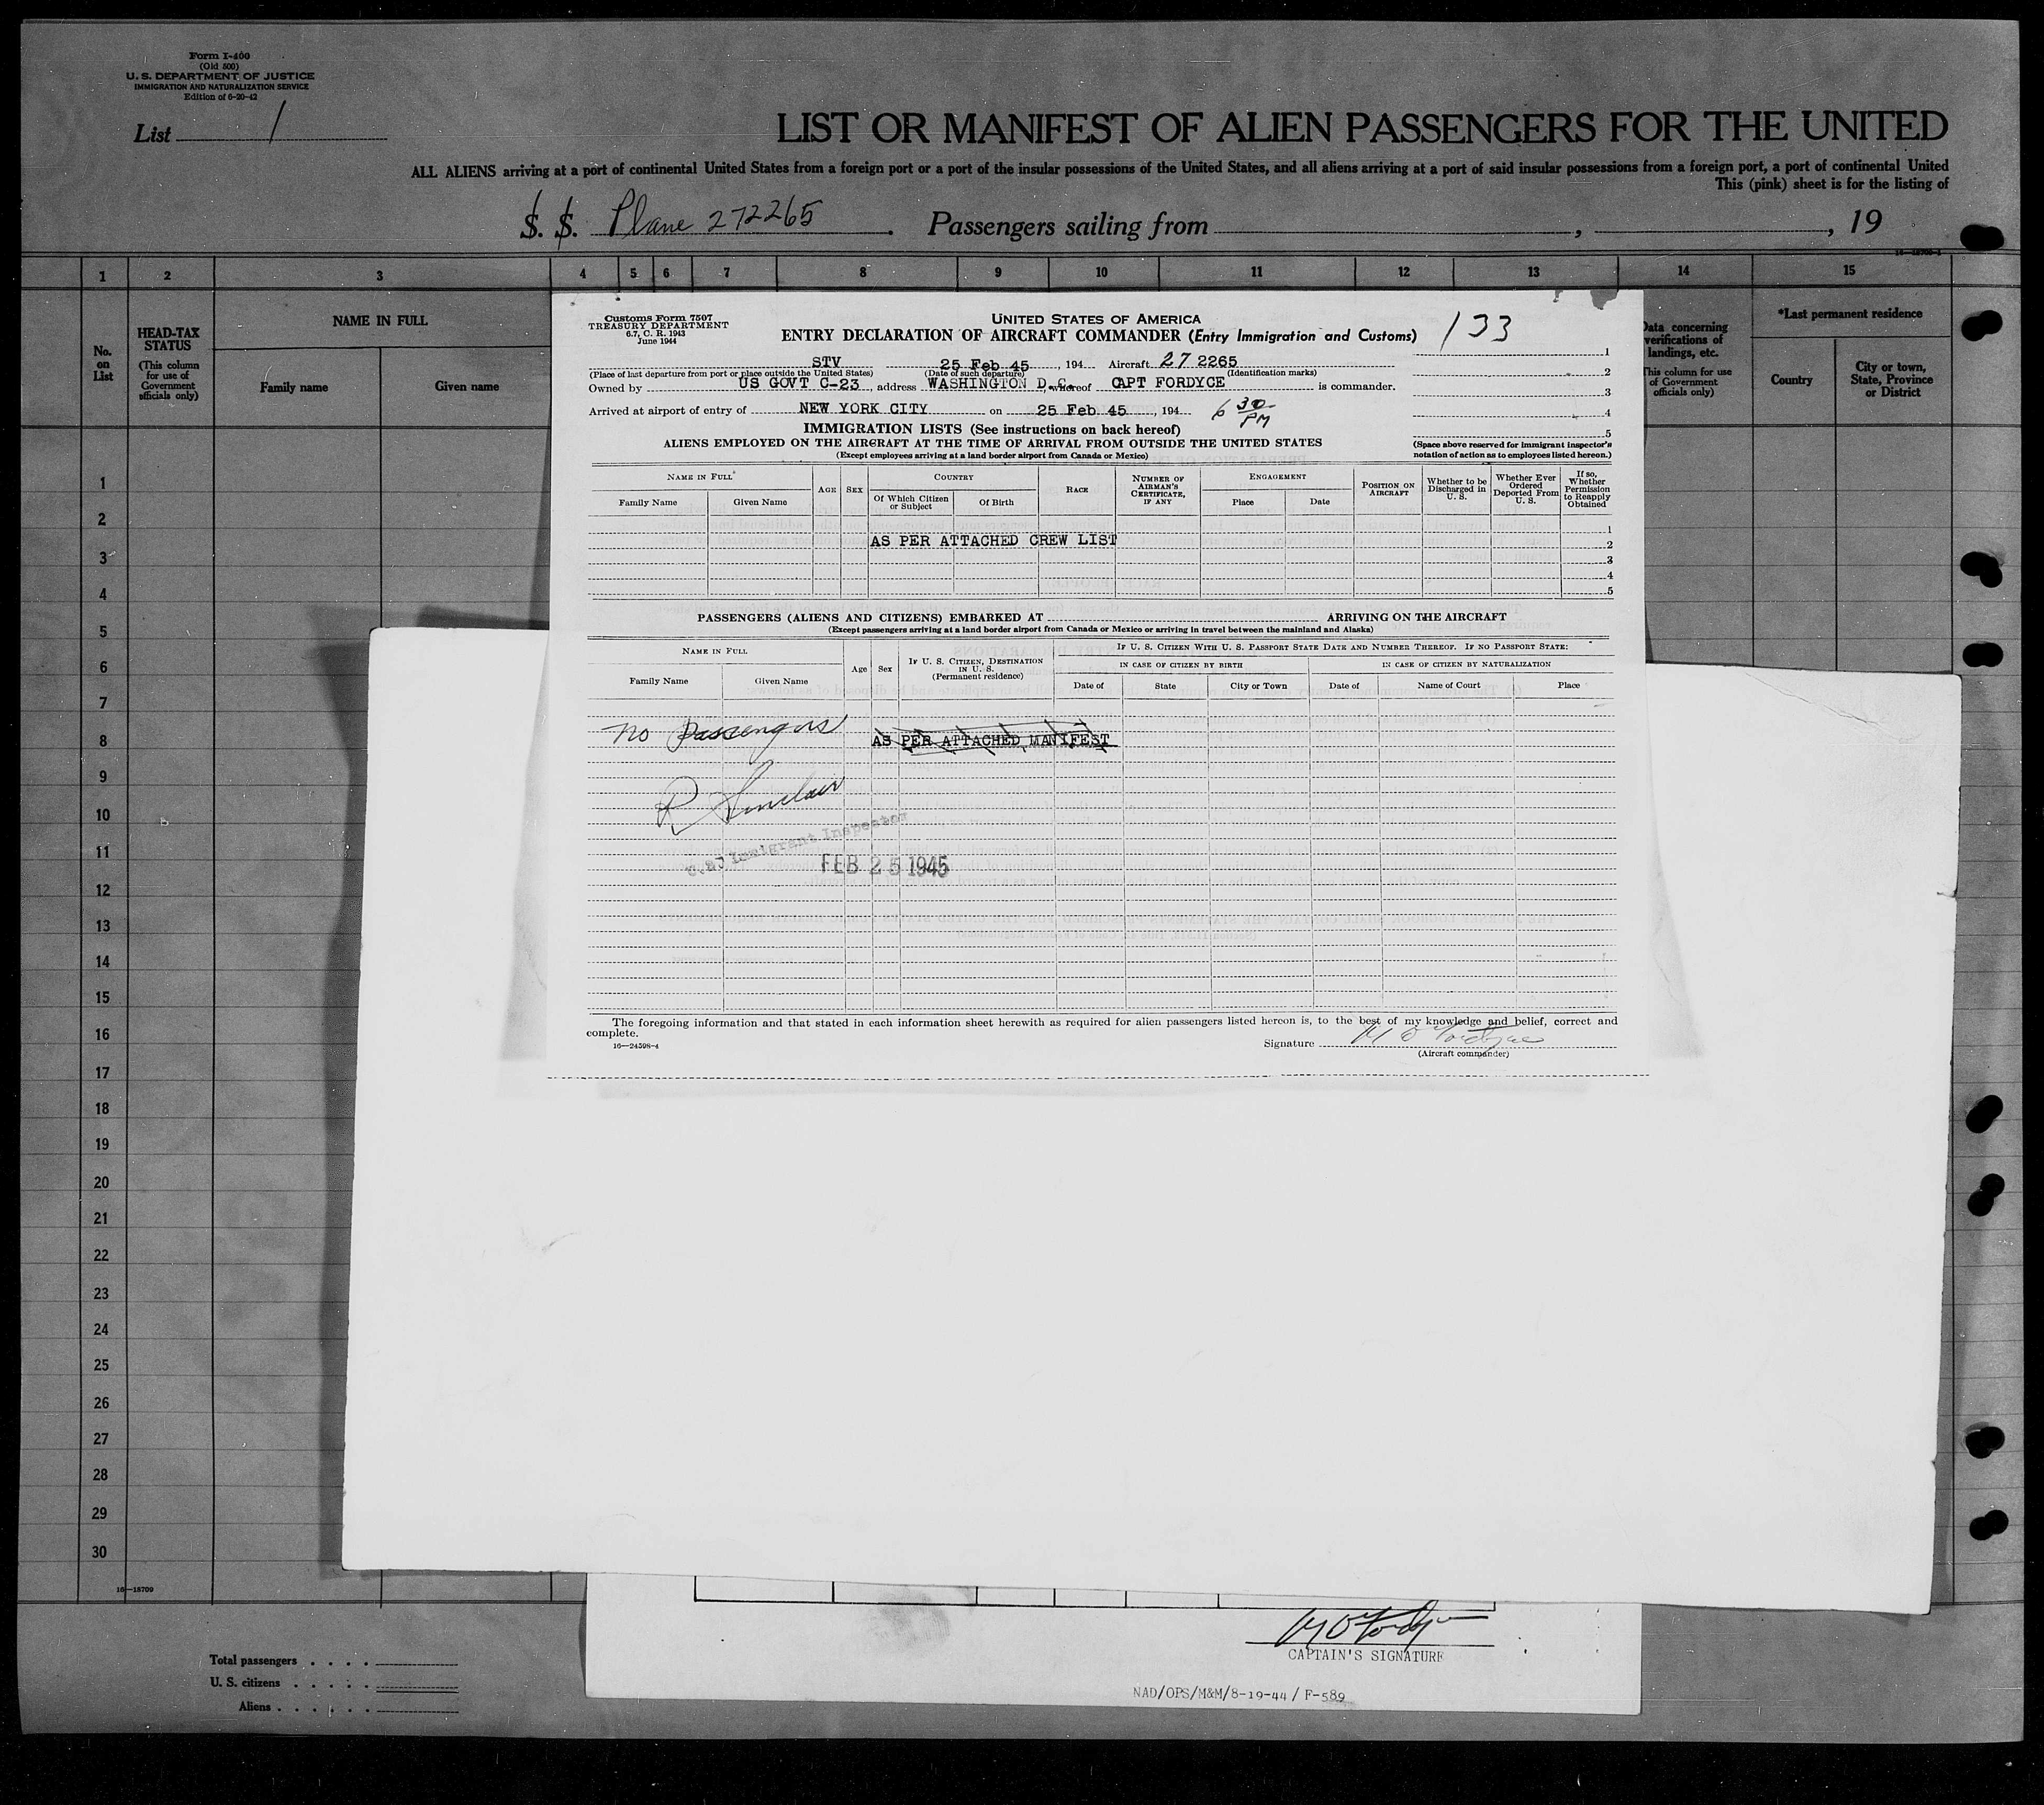 Form I-400
(Old 500)
U. S. DEPARTMENT OF JUSTICE
IMMIGRATION AND NATURALIZATION SERVICE
Edition of 6-20-42
List 1
LIST OR MANIFEST OF ALIEN PASSENGERS FOR THE UNITED
ALL ALIENS arriving at a port of continental United States from a foreign port or a port of the insular possessions of the United States, and all aliens arriving at a port of said insular possessions from a foreign port, a port of continental United
This (pink) sheet is for the listing of
S. S. Plane 272265. Passengers sailing from , , 19
1 2 3 4 5 6 7 8 9 10 11 12 13 14 15
No. on List
HEAD-TAX STATUS
(This column for use of Government officials only)
NAME IN FULL
Family name Given name
Data concerning verifications of landings, etc.
This column for use of Government officials only)
*Last permanent residence
Country
City or town, State, Province or District
Customs Form 7507
TREASURY DEPARTMENT
6.7, C. R. 1943
June 1944
UNITED STATES OF AMERICA
ENTRY DECLARATION OF AIRCRAFT COMMANDER (Entry Immigration and Customs)
133
STV 25 Feb 45, 194 Aircraft 27 2265
(Place of last departure from port or place outside the United States) (Date of such departure) (Identification marks)
Owned by US GOVT C-23, address WASHINGTON D.C. whereof CAPT FORDYCE is commander.
Arrived at airport of entry of NEW YORK CITY on 25 Feb 45, 194 6 30 PM
1
2
3
4
5
IMMIGRATION LISTS (See instructions on back hereof)
ALIENS EMPLOYED ON THE AIRCRAFT AT THE TIME OF ARRIVAL FROM OUTSIDE THE UNITED STATES
(Except employees arriving at a land border airport from Canada or Mexico)
(Space above reserved for immigrant inspector's notation of action as to employees listed hereon.)
NAME IN FULL
Family Name Given Name
AGE SEX
COUNTRY
Of Which Citizen or Subject Of Birth
RACE
NUMBER OF AIRMAN'S CERTIFICATE, IF ANY
ENGAGEMENT
Place Date
POSITION ON AIRCRAFT
Whether to be Discharged in U. S.
Whether Ever Ordered Deported From U. S.
If so, Whether Permission to Reapply Obtained
AS PER ATTACHED CREW LIST
1
2
3
4
5
PASSENGERS (ALIENS AND CITIZENS) EMBARKED AT ARRIVING ON THE AIRCRAFT
(Except passengers arriving at a land border airport from Canada or Mexico or arriving in travel between the mainland and Alaska)
NAME IN FULL
Family Name Given Name
Age Sex
IF U. S. CITIZEN, DESTINATION IN U. S.
(Permanent residence)
IF U. S. CITIZEN WITH U. S. PASSPORT STATE DATE AND NUMBER THEREOF. IF NO PASSPORT STATE:
IN CASE OF CITIZEN BY BIRTH IN CASE OF CITIZEN BY NATURALIZATION
Date of State City or Town Date of Name of Court Place
No Passengers
AS PER ATTACHED MANIFEST
R Sinclair
U.S. Immigrant Inspector
FEB 25 1945
The foregoing information and that stated in each information sheet herewith as required for alien passengers listed hereon is, to the best of my knowledge and belief, correct and
complete.
16—24598-4
Signature
(Aircraft commander)
1
2
3
4
5
6
7
8
9
10
11
12
13
14
15
16
17
18
19
20
21
22
23
24
25
26
27
28
29
30
16—18709
Total passengers
U. S. citizens
Aliens
CAPTAIN'S SIGNATURE
NAD/OPS/M&M/8-19-44 / F-589